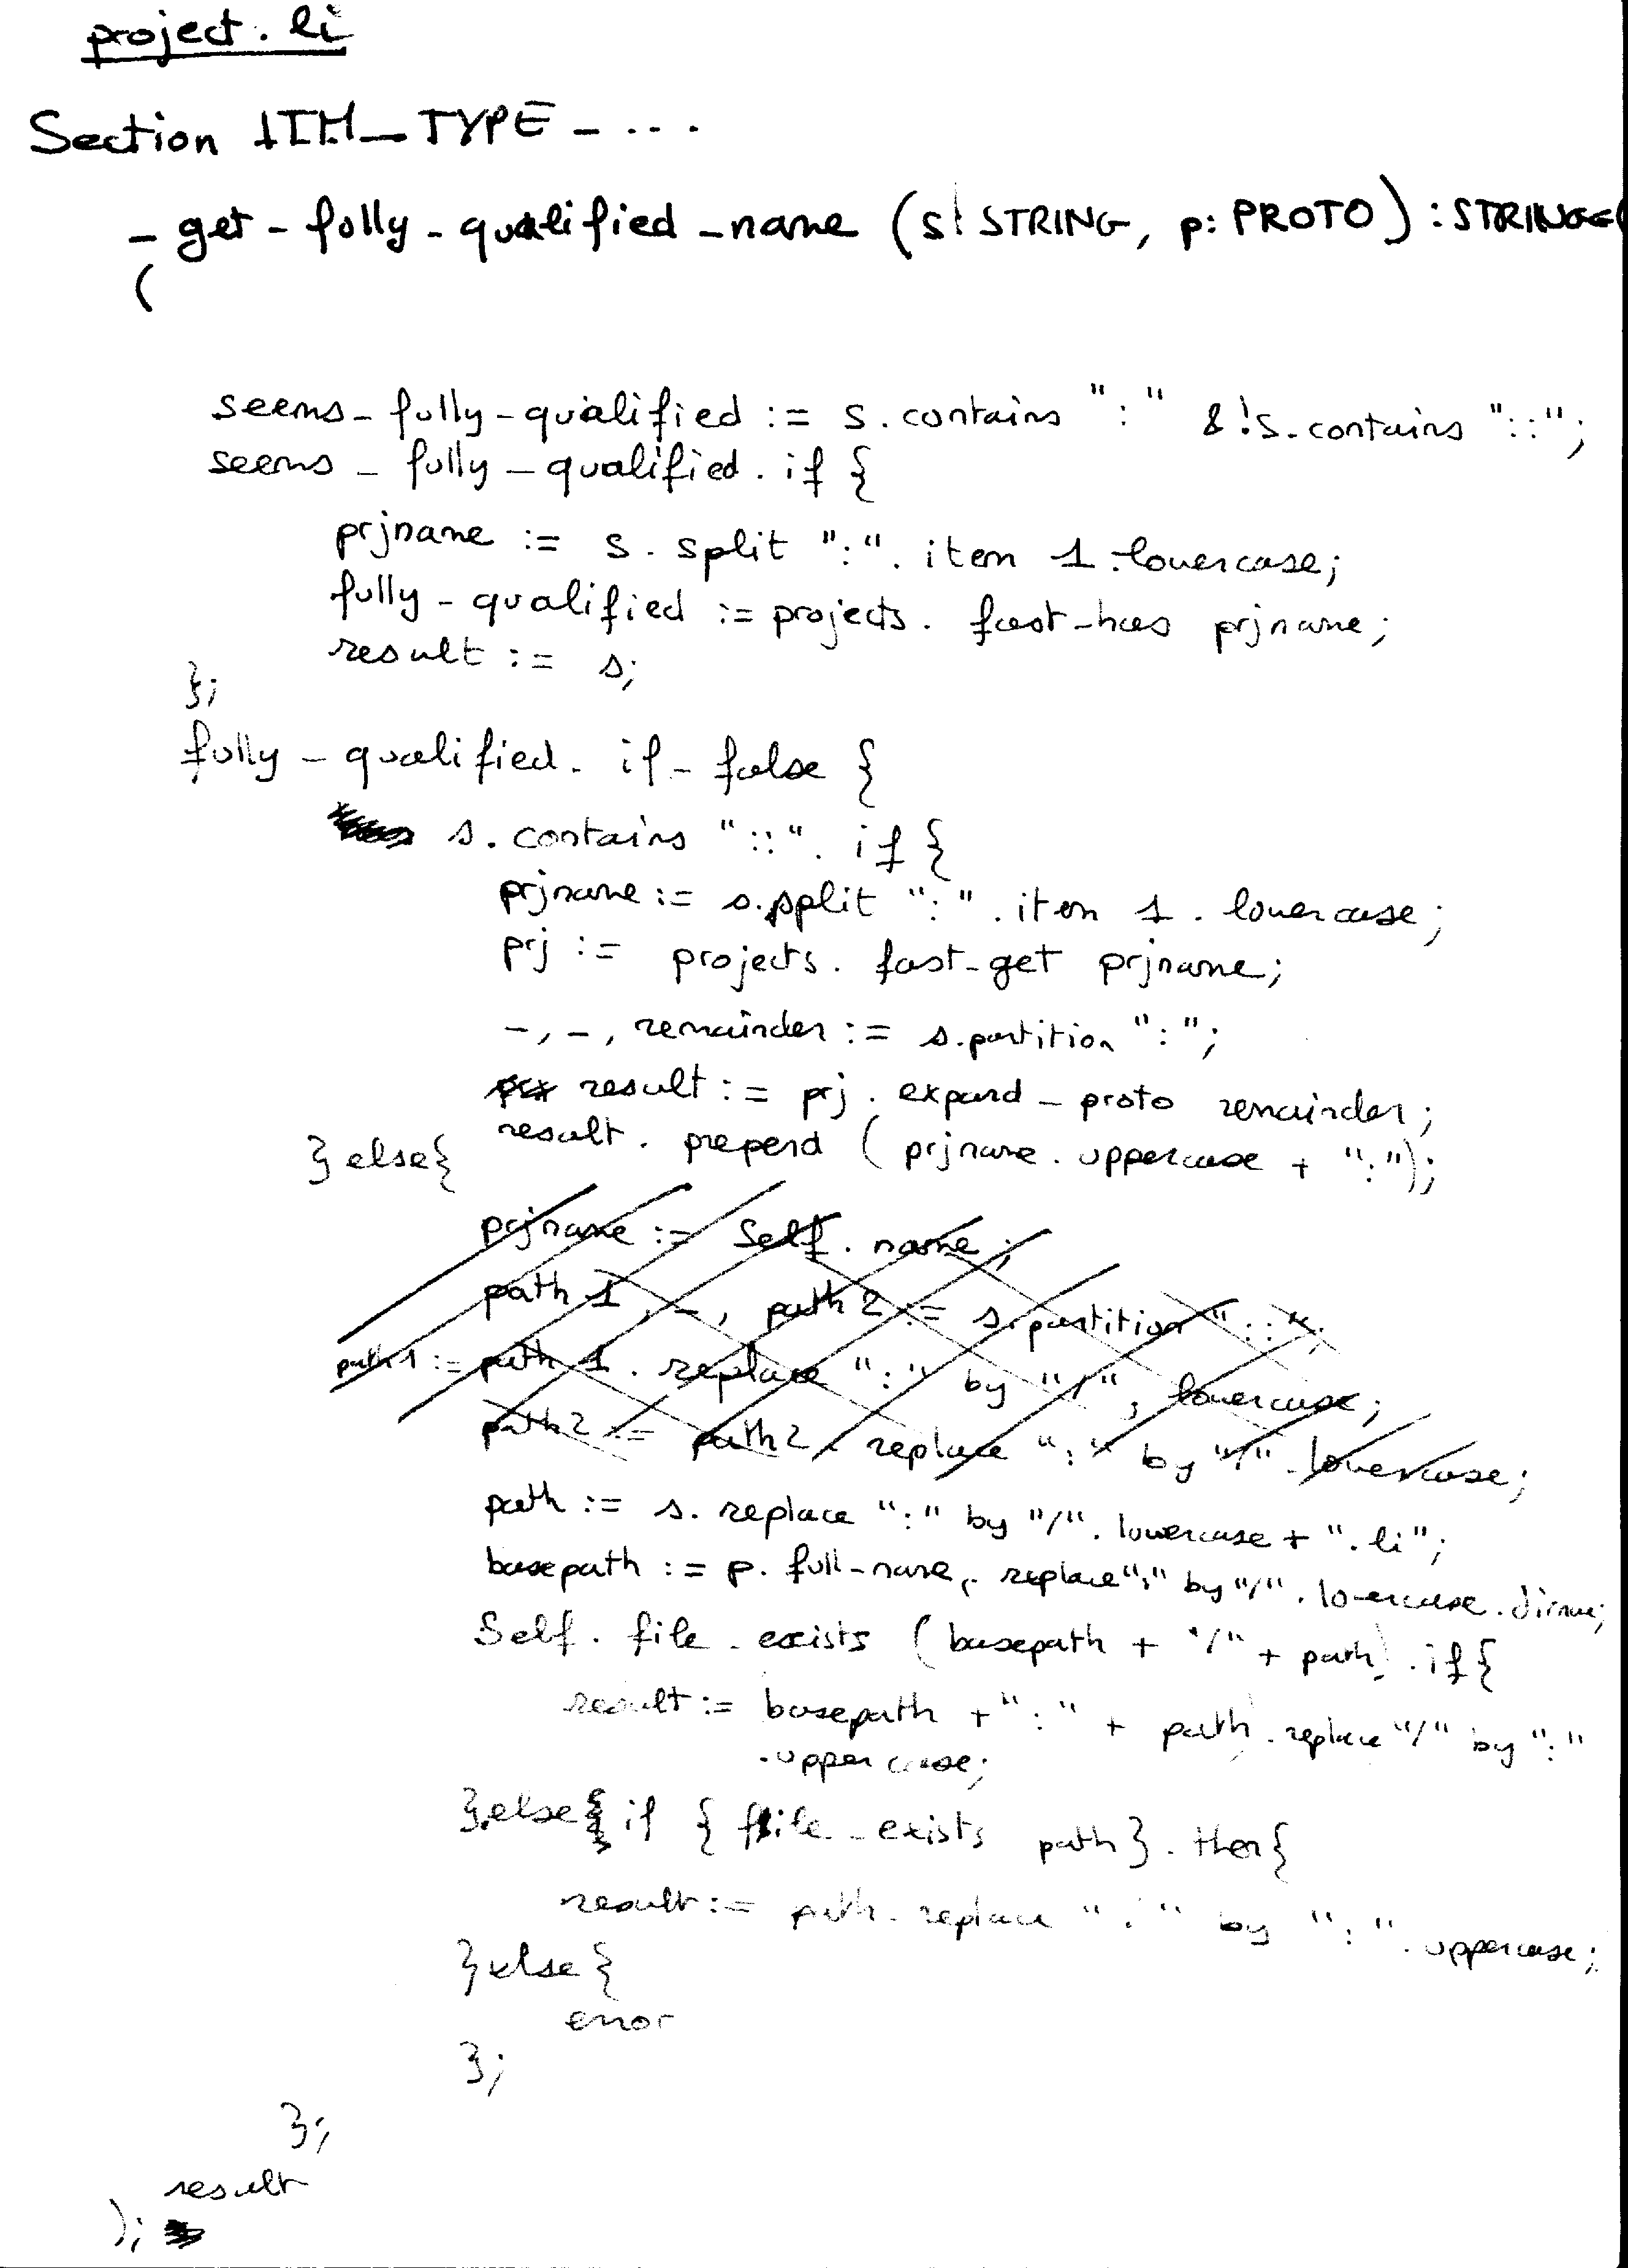 project.li
Section ITM_TYPE_....
- get-fully-qualified_name (s: STRING, p: PROTO) : STRING
(
seems_fully_qualified := s.contains ":" & !s.contains "::";
seems_fully_qualified.if {
prjname := s.split ":".item 1.lowercase;
fully_qualified := projects.fast_has prjname;
result := s;
};
fully_qualified.if_false {
s.contains "::".if {
prjname := s.split ":".item 1.lowercase;
prj := projects.fast_get prjname;
-,-, remainder := s.partition ":";
result := prj.expand_proto remainder;
result.prepend (prjname.uppercase + ":");
} else {
prjname := Self.name;
path1, -, path2 := s.partition "::";
path1 := path1.replace ":" by "/", lowercase;
path2 := path2.replace ":" by "/".lowercase;
path := s.replace ":" by "/".lowercase + ".li";
basepath := p.full_name.replace ":" by "/".lowercase.dirname;
Self.file_exists (basepath + "/" + path).if {
result := basepath + ":" + path.replace "/" by ":"
.uppercase;
}.else if { file_exists path}.then{
result := path.replace "." by ":".uppercase;
} else {
error
};
};
result
);